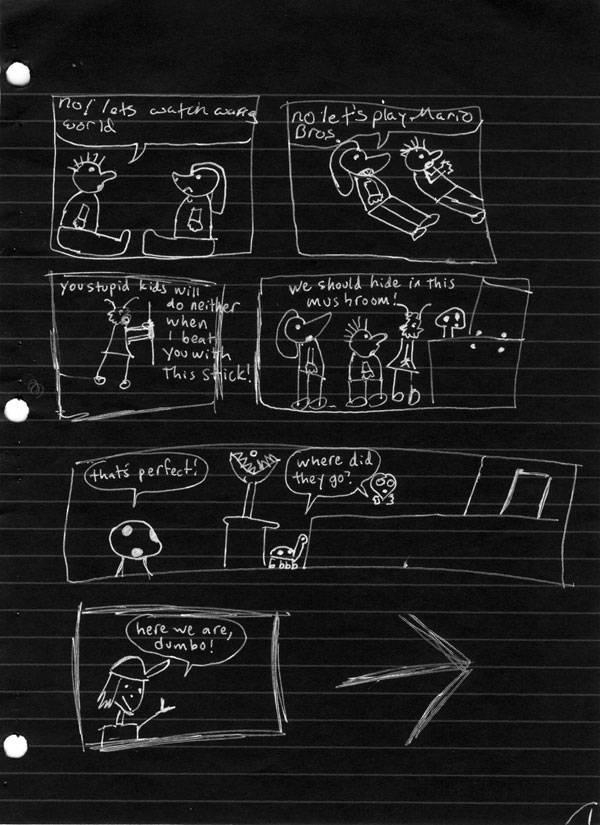 no! lets watch
world
no let's play Mario
Bros.
you stupid kids will
do neither
when
I beat
you with
this stick!
we should hide in this
mushroom!
that's perfect!
where did
they go?
here we are,
dumbo!